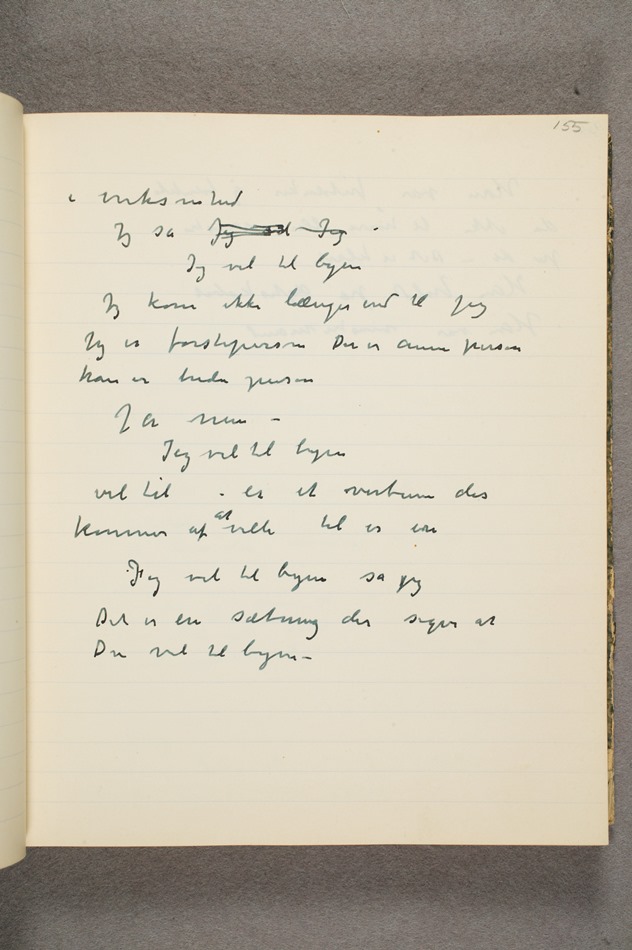 155
i virksomhed
Jeg sa Jeg sad Jeg .
Jeg vil til byen
Jeg kom ikke længer end til jeg
Jeg er försteperson Du er anden person
han er tredie person
Jeg vil til byen
vil til - er et verbum der
kommer af at ville til er en
Jeg vil til byen sa jeg
Det er en sætning der siger at
Du vil til byen -